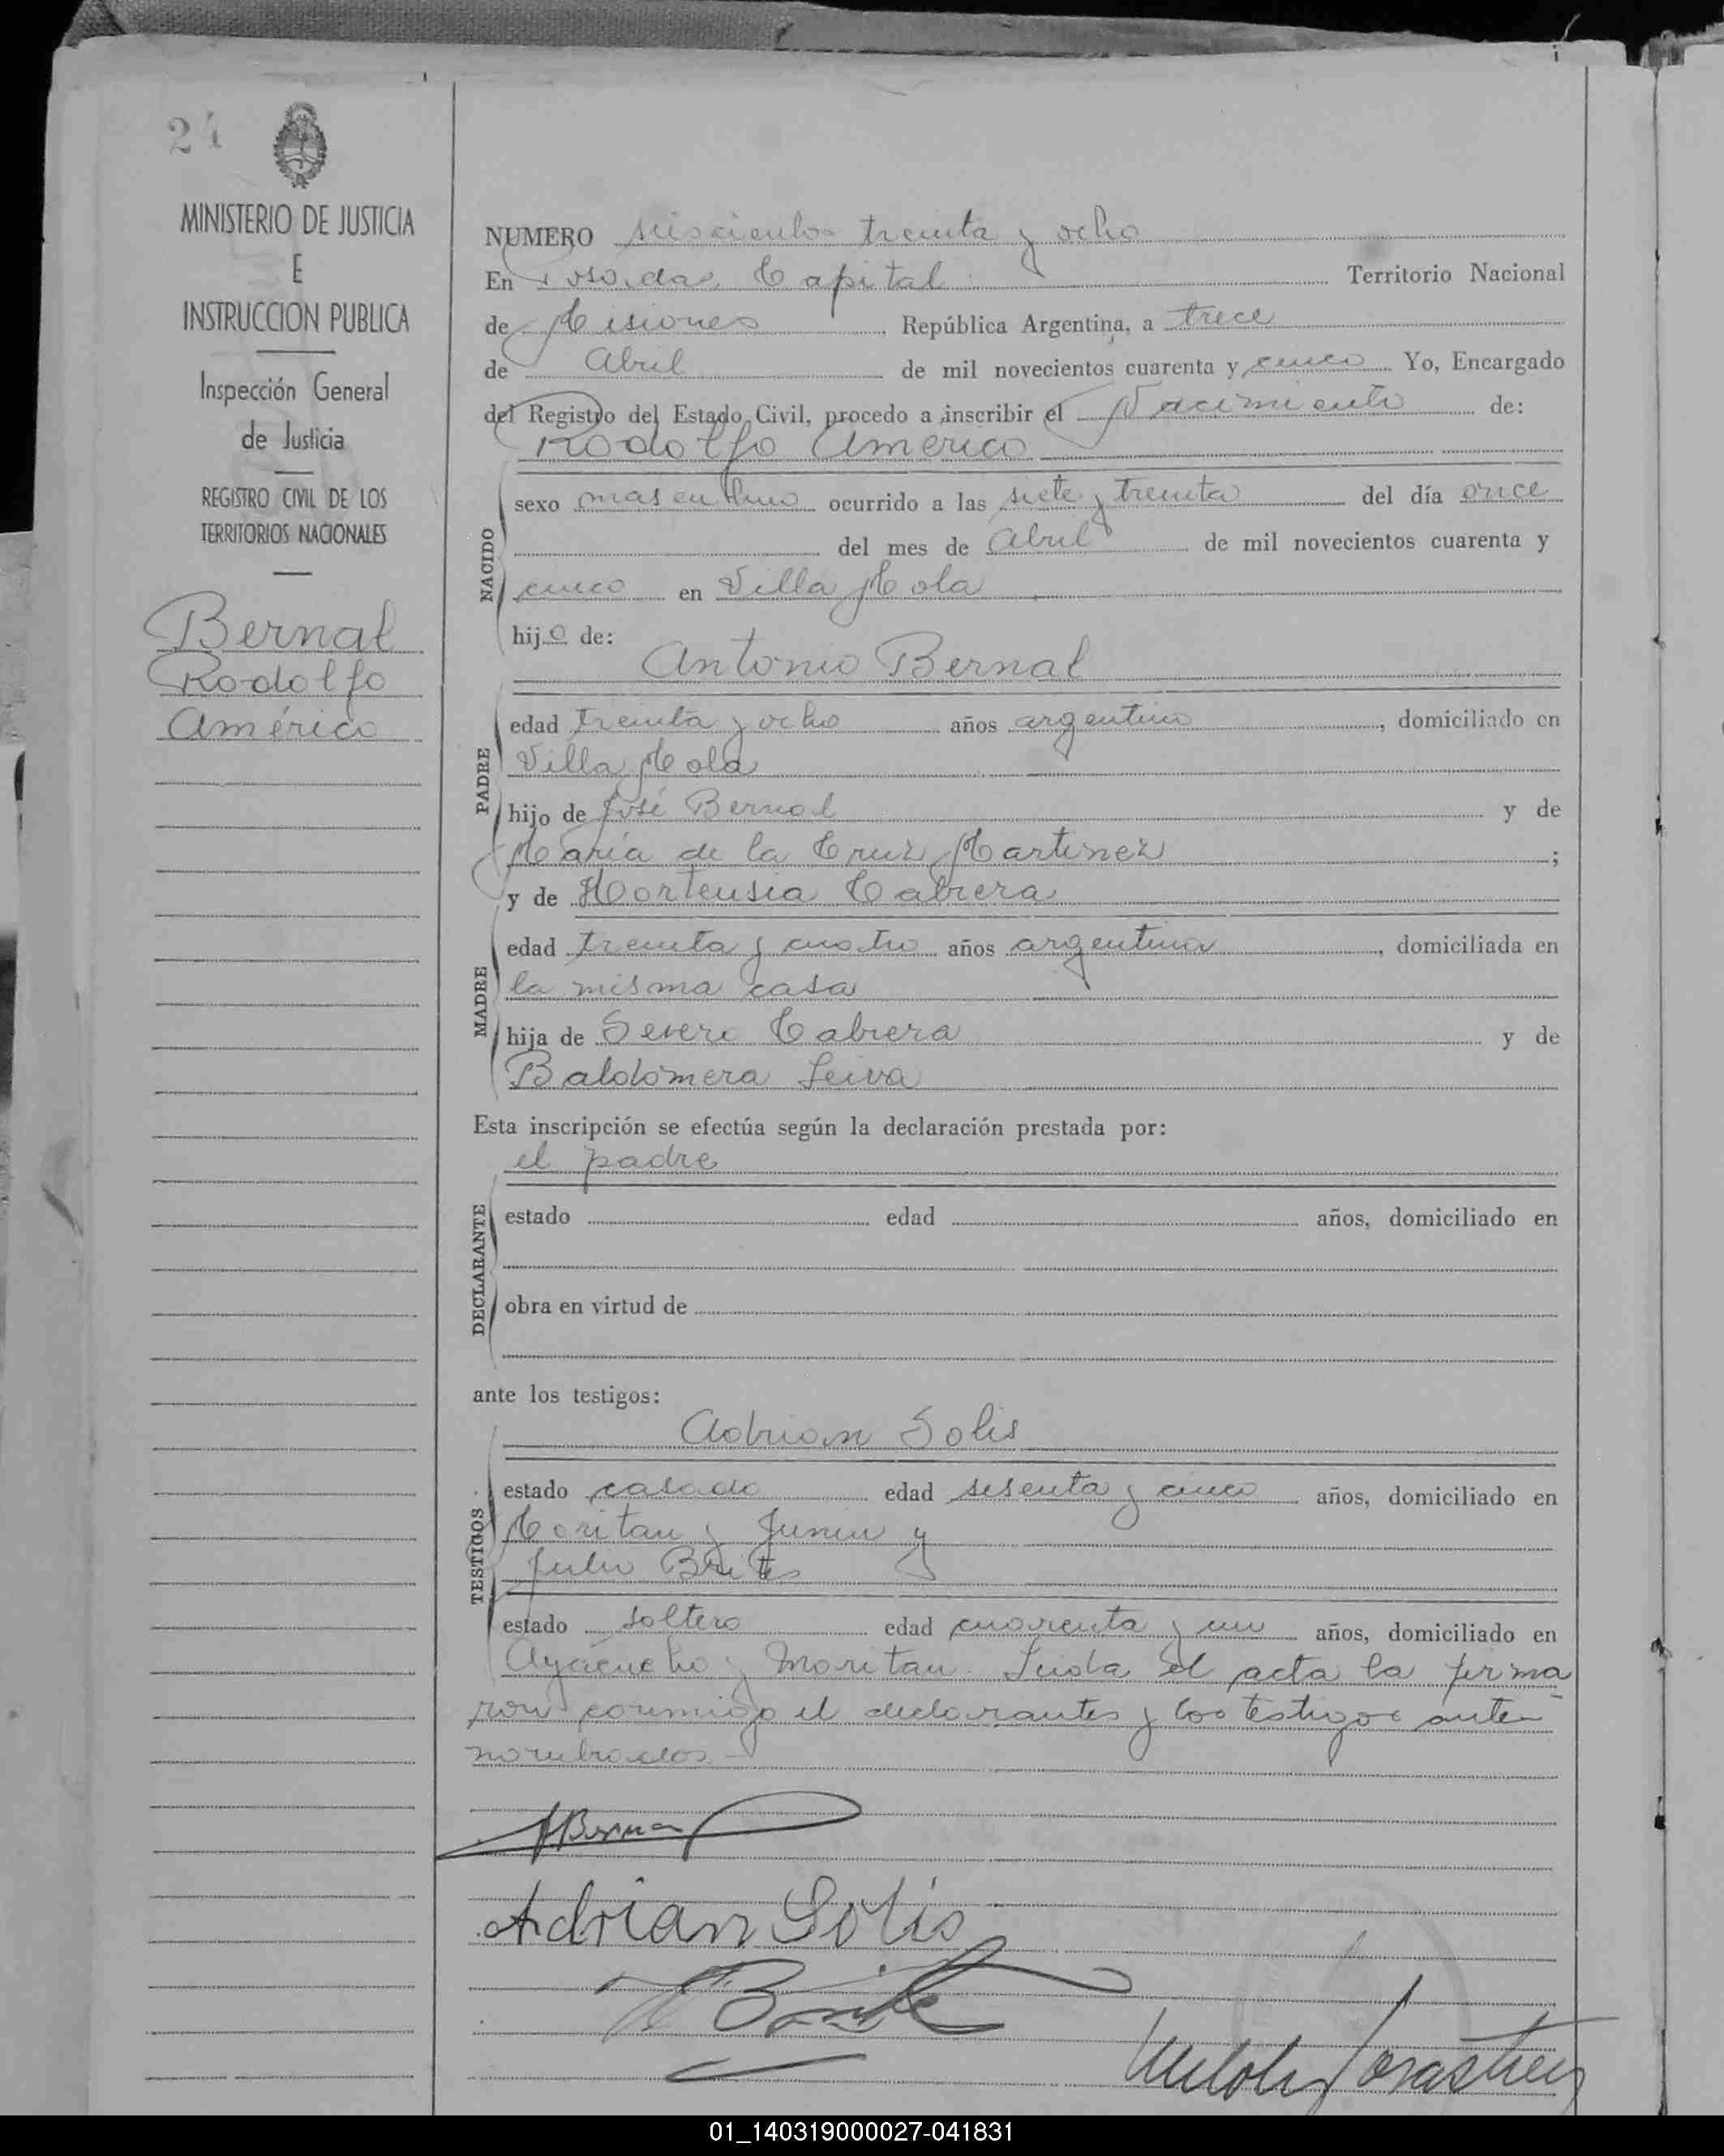 24
MINISTERIO DE JUSTICIA
E
INSTRUCCION PUBLICA
Inspección General
de Justicia
REGISTRO CIVIL DE LOS
TERRITORIOS NACIONALES
Bernal
Rodolfo
Américo
NUMERO seiscientos treinta y ocho
En Posadas, Capital Territorio Nacional
de Misiones, República Argentina, a trece
de Abril de mil novecientos cuarenta y cinco Yo, Encargado
del Registro del Estado Civil, procedo a inscribir el Nacimiento de:
Rodolfo Americo
NACIDO
sexo masculino ocurrido a las siete y treinta del día once
del mes de Abril de mil novecientos cuarenta y
cinco en Villa Mola
hijo de:
Antonio Bernal
PADRE
edad treinta y ocho años argentino, domiciliado en
Villa Mola
hijo de José Bernal y de
María de la Cruz Martinez;
y de Hortensia Cabrera
MADRE
edad treinta y cuatro años argentina, domiciliada en
la misma casa
hija de Severo Cabrera y de
Baldomera Leiva
Esta inscripción se efectúa según la declaración prestada por:
el padre
DECLARANTE
estado edad años, domiciliado en
obra en virtud de
ante los testigos:
Adrian Solis
TESTIGOS
estado casado edad sesenta y cinco años, domiciliado en
Moritan y Junin y
Julio Brites
estado soltero edad cuarenta y un años, domiciliado en
Ayacucho y Moritan. Leida el acta la firma
ron conmigo el declarantes y los testigos ante-
nombrados.-
ABernal
Adrian Solis
01_140319000027-041831